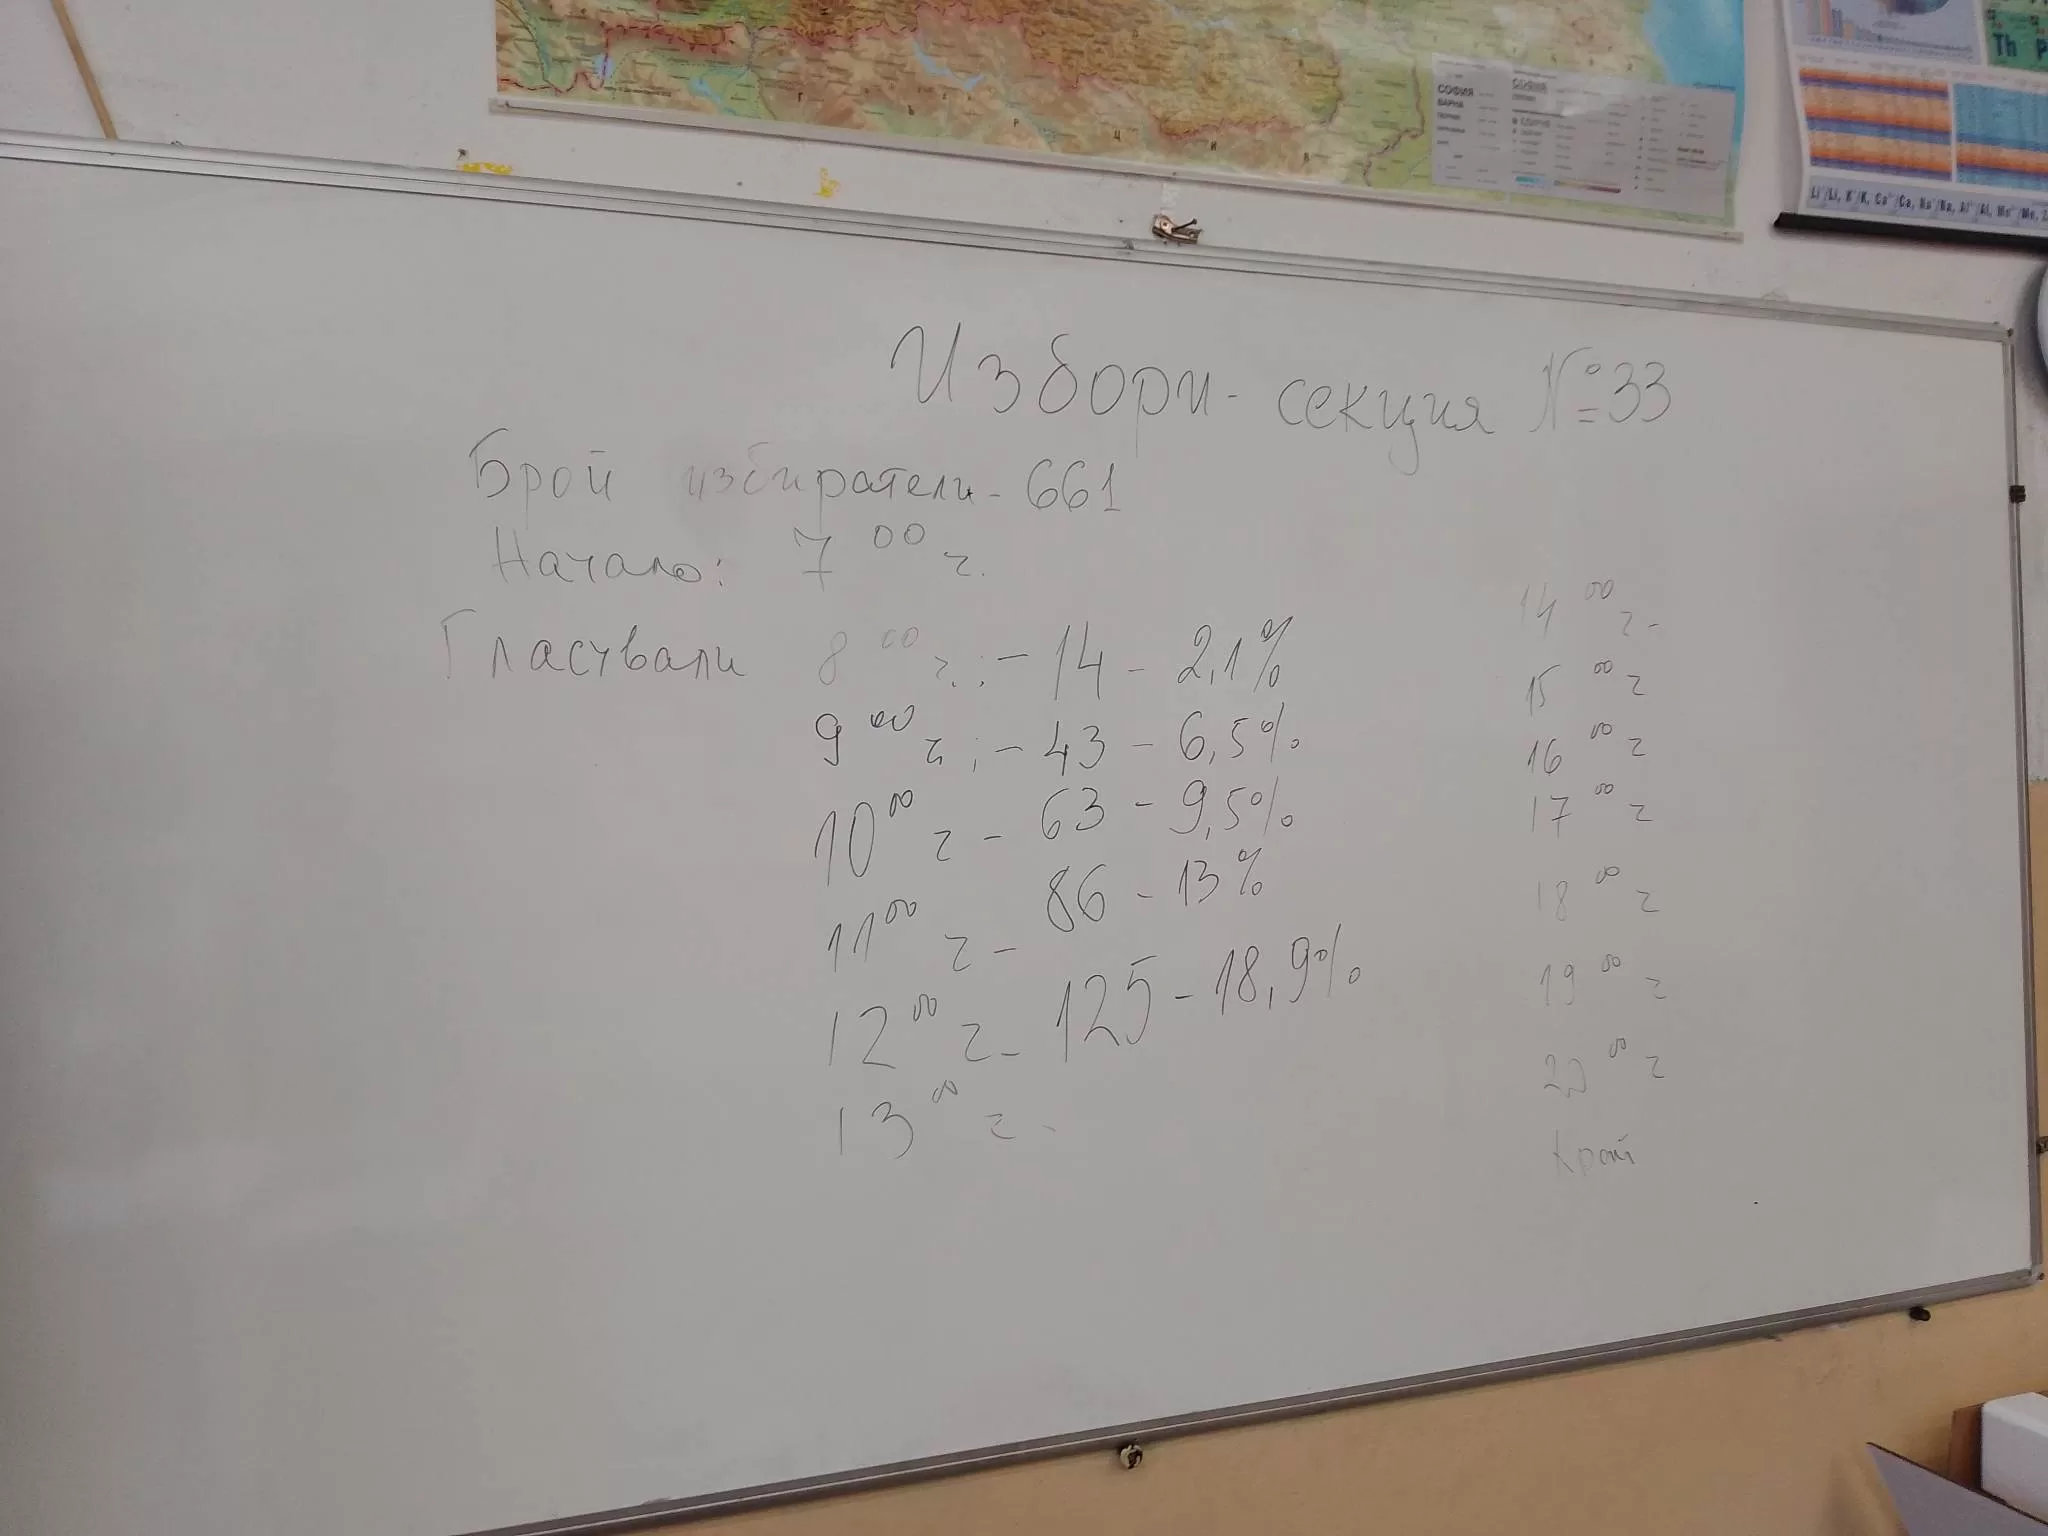 СОФИЯ
ВАРНА
Th P
Избори - секция № 33
Брой избиратели - 661
Начало: 7 00 ч.
Гласували 8 00 ч.: - 14 - 2,1%
9 00 ч.: - 43 - 6,5%
10 00 ч - 63 - 9,5%
11 00 ч - 86 - 13%
12 00 ч - 125 - 18,9%
13 00 ч -
14 00 ч -
15 00 ч
16 00 ч
17 00 ч
18 00 ч
19 00 ч
20 00 ч
Край